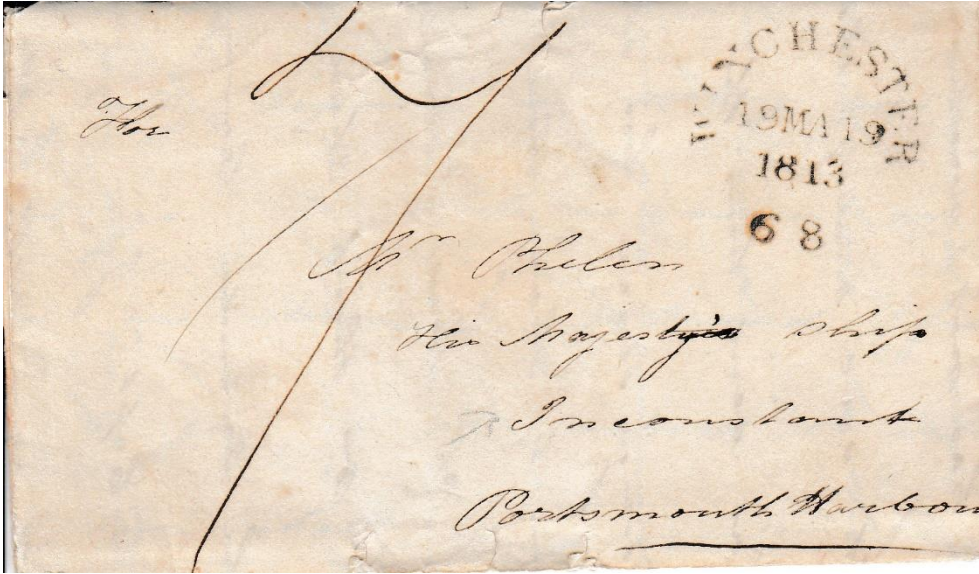 WINCHESTER
19MA19
1813
68
For
Mr Phelan
His Majesty's ship
Inconstant
Portsmouth Harbour